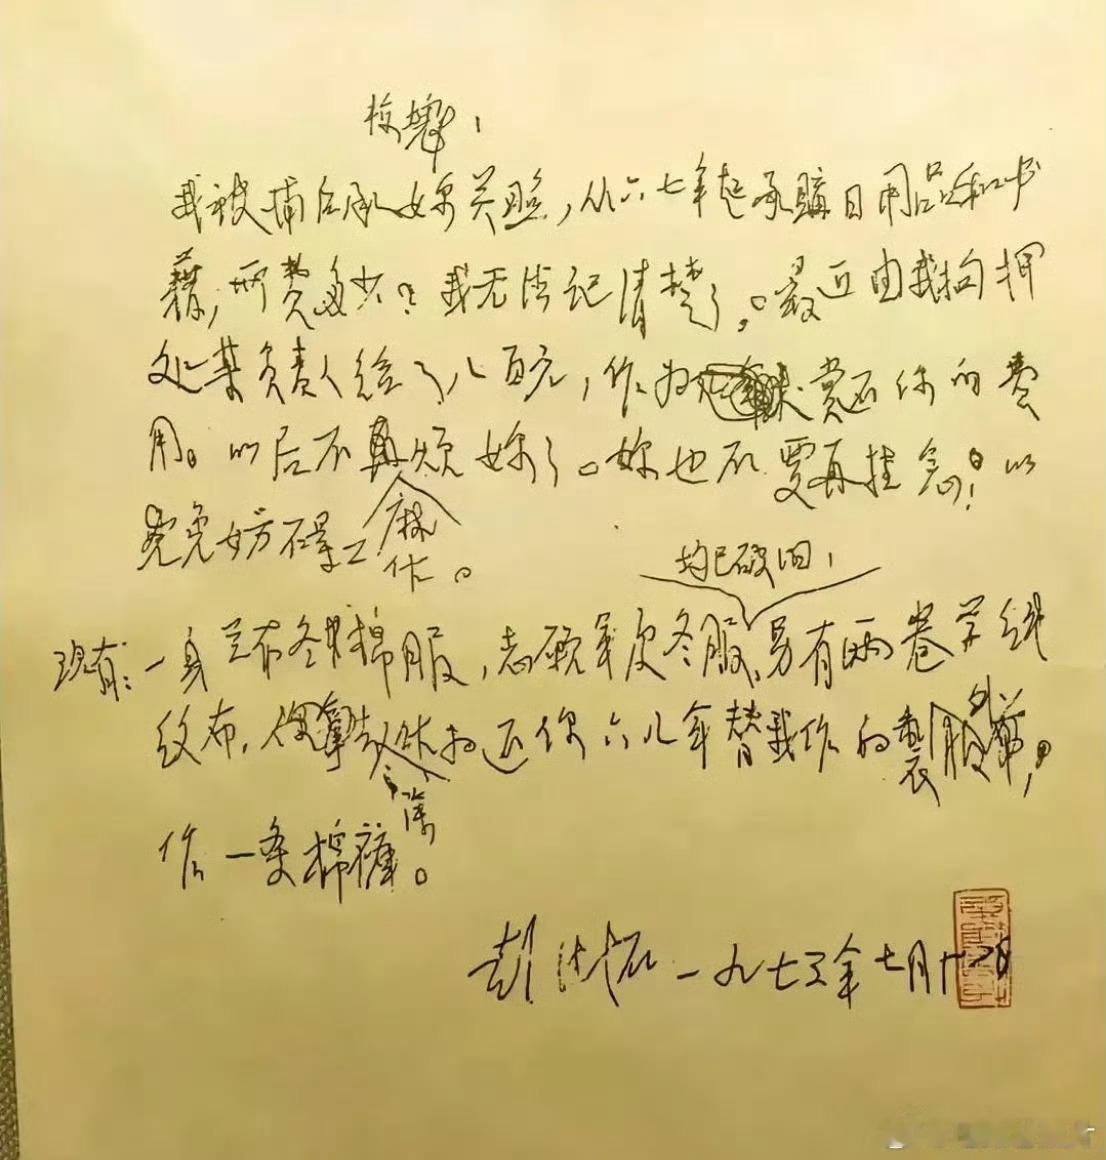 梅嬃，
我被捕后承妳关照，从六七年起承購日用品和书
藉，所费多少？我无法记清楚了。最近由我拘押
处某负责人给了八百元，作为 赏还你的费
用。以后不再麻烦妳了。妳也不要再挂念！以
免妨碍工作。
均已破旧，
现有：一身兰布冬棉服，志愿军次冬服，另有两卷字线
纹布，你拿去 还你六八年替我作的 服
作一条棉裤。
彭德怀 一九七三年七月